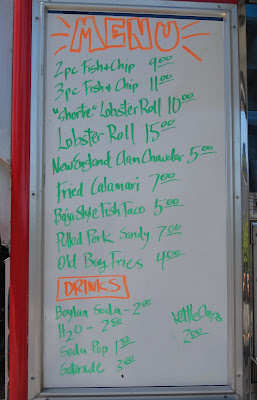 MENU
2pc Fish & Chip 9.00
3pc Fish & Chip 11.00
"Shortie" Lobster Roll 10.00
Lobster Roll 15.00
New England Clam Chowdar 5.00
Fried Calamari 7.00
Baja Style Fish Taco 5.00
Pulled Pork Sandy 7.00
Old Bay Fries 4.00
DRINKS
Boylan Soda - 2.00
H2O - 2.00
Soda Pop 1.50
Gatorade 3.00
Kettle Chips
2.00